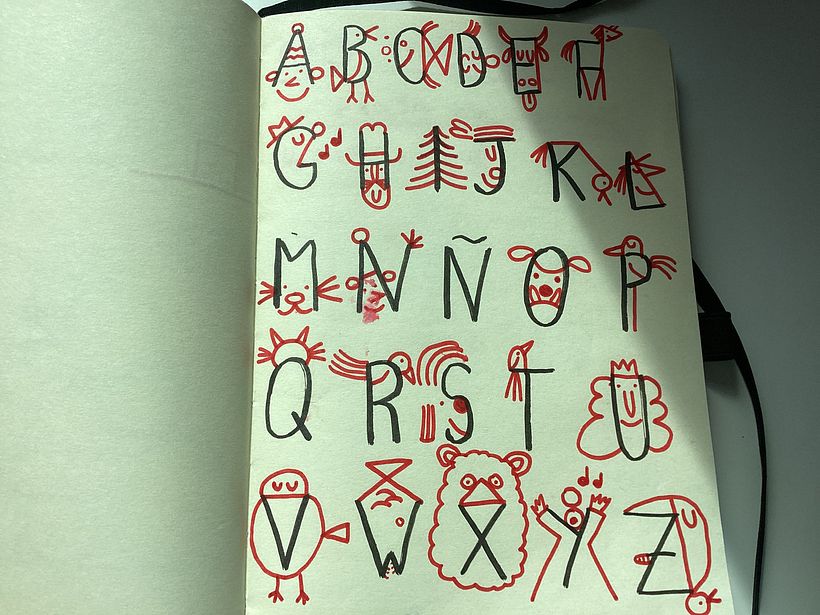 A B C D E F
G H I J K L
M N Ñ O P
Q R S T U
V W X Y Z